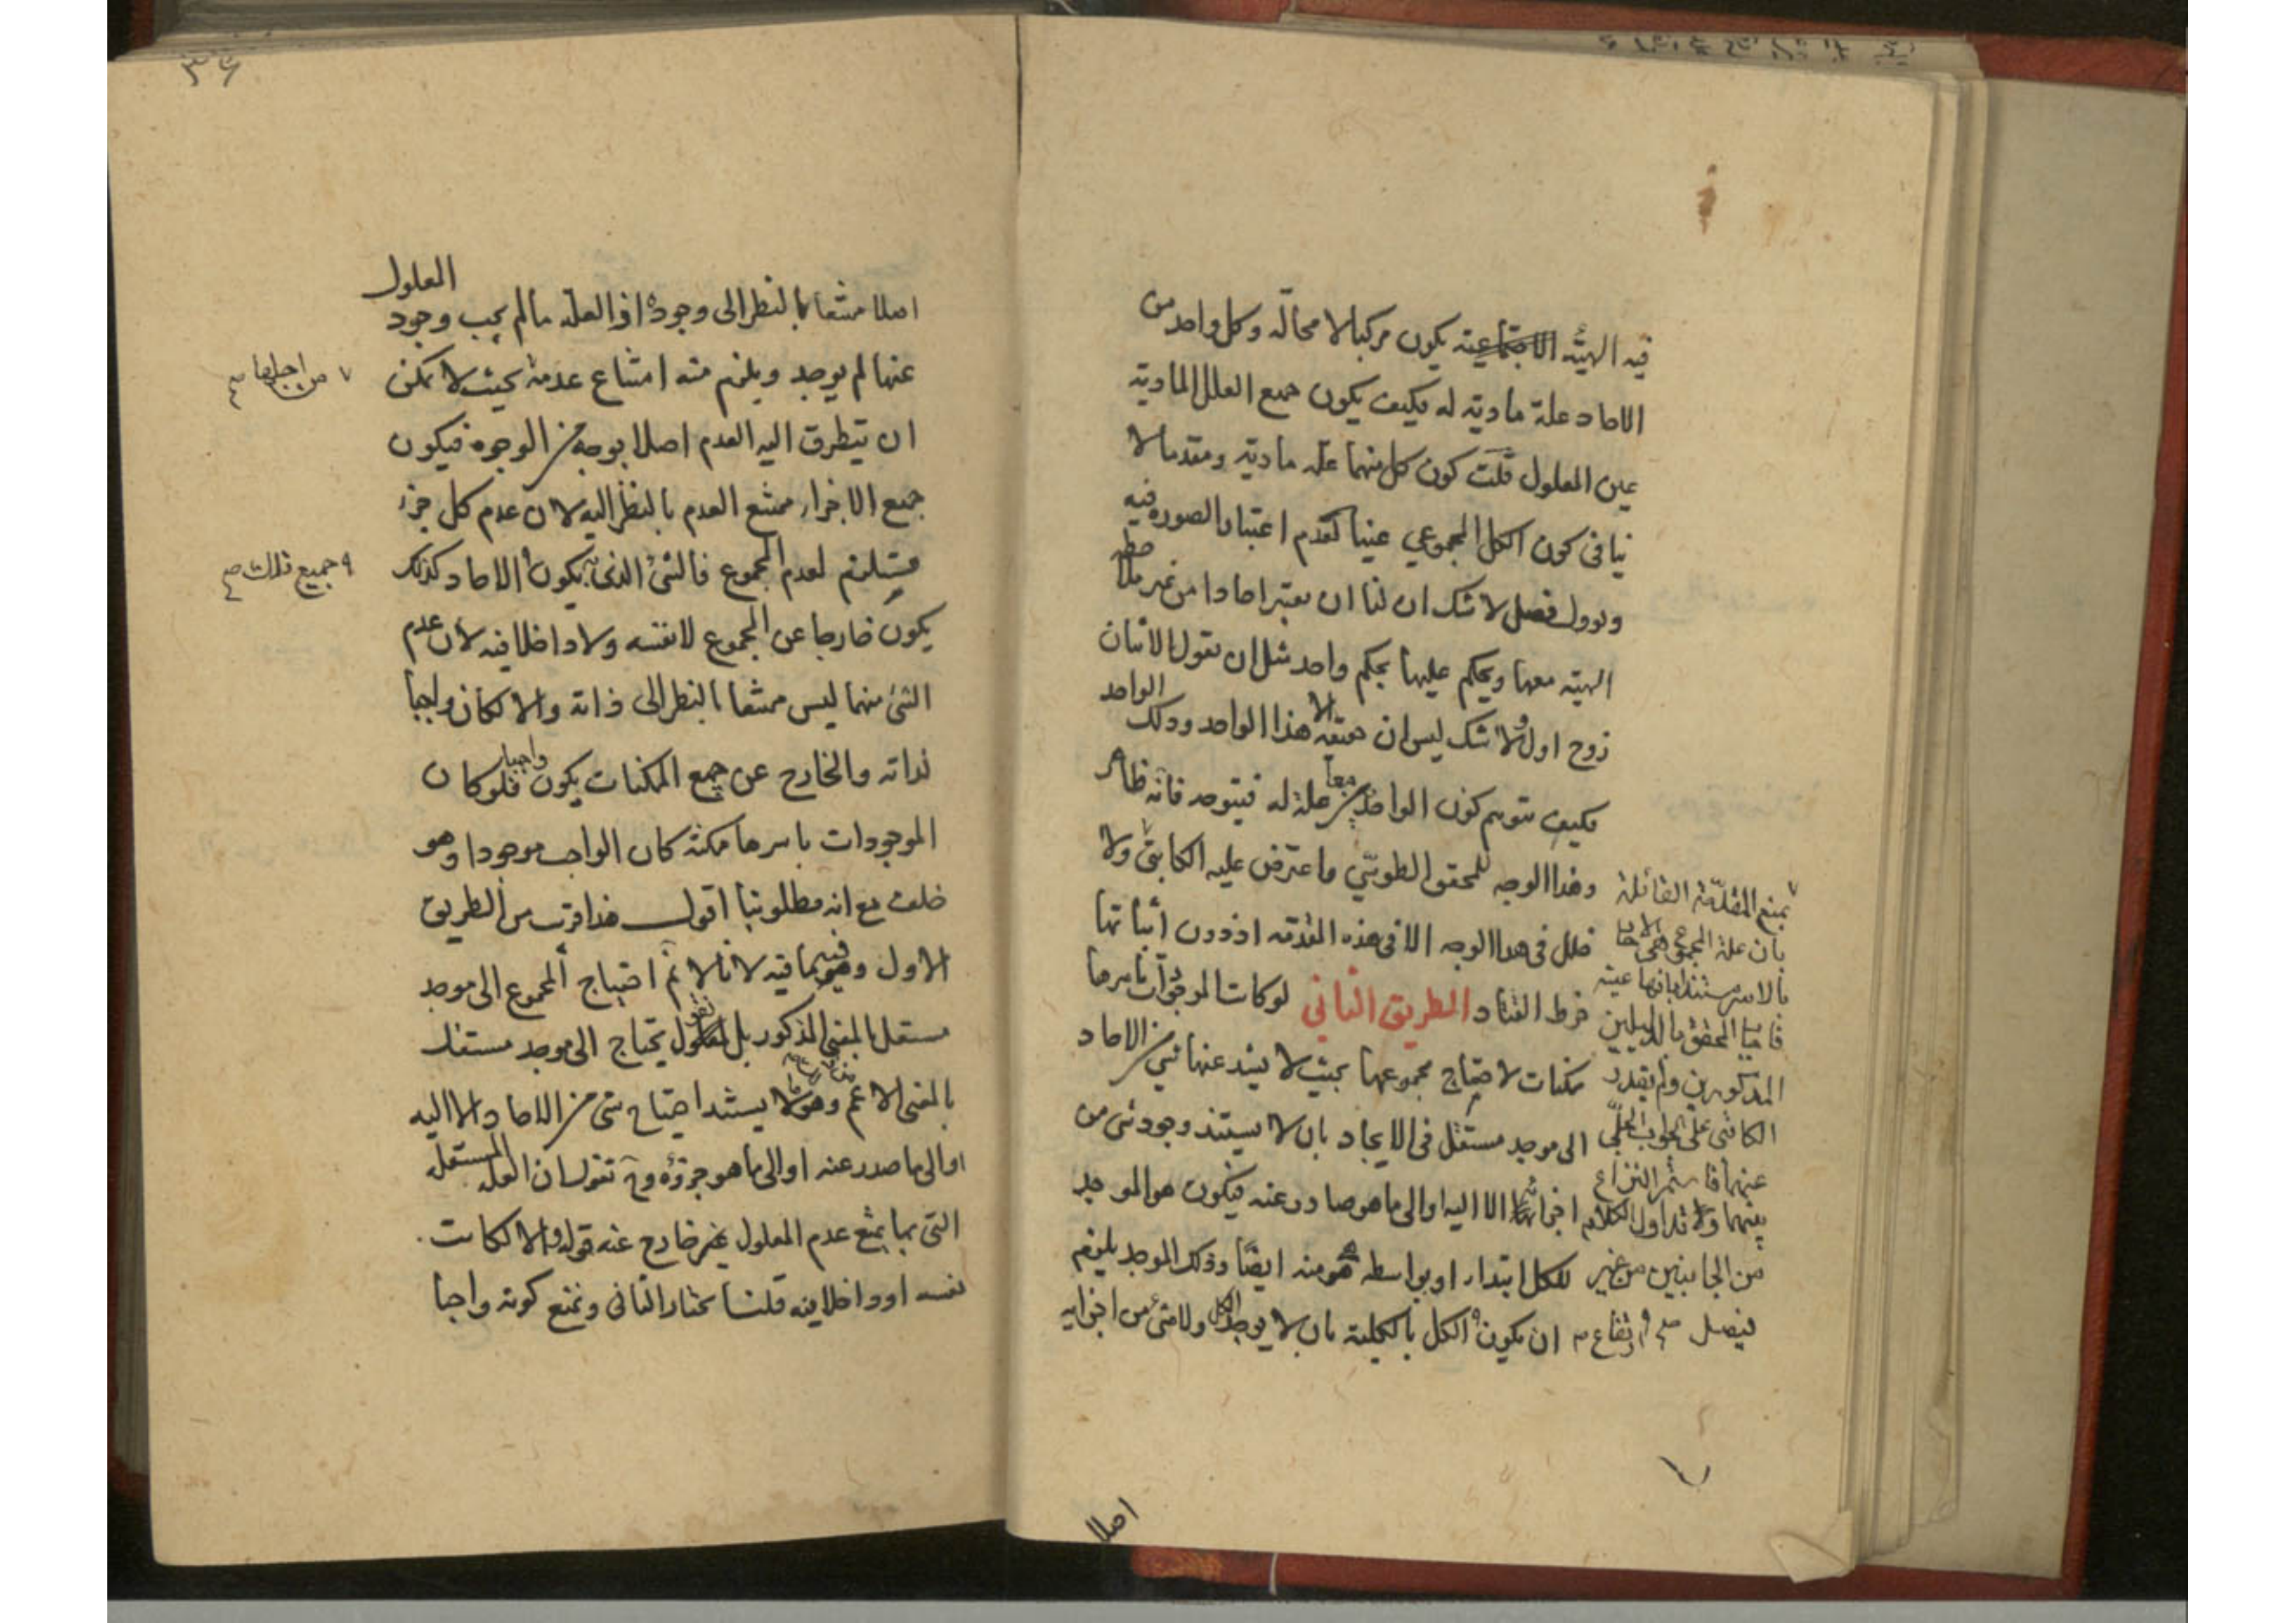 فيه الهيئة الاجتماعية يكون مركبا لا محالة وكل واحد من
الاحاد علة مادية له فكيف يكون جميع العلل المادية
عين المعلول قلت كون كل منهما علة مادية ومقدما لا
ينافى كون الكل المجموعي عينا لعدم اعتبار الصورة فيه
فصل لا شك ان لنا ان نعتبر احادا من غير ملاحظة
الهيئة معها ويحكم عليها بحكم واحد مثل ان نقول الاثنان
زوج اول ولا شك ليس ان حقيقة الا هذا الواحد وذلك الواحد
فكيف يتوهم كون الواحد من علة له فيتوجه فانه ظاهر
وهذا الوجه للمحقق الطوسي واعترض عليه الكاتبي ولا
خلل فى هذا الوجه الا فى هذه المقدمة اذ دون اثباتها
خرط القتاد الطريق الثاني لو كانت الموجودات باسرها
ممكنات لاحتاج مجموعها بحيث لا يشذ عنها شئ من الاحاد
الى موجد مستقل فى الايجاد بان لا يستند وجود شئ من
اجزائها الا اليه او الى ما هو صادر عنه فيكون هو الموجد
للكل ابتداء او بواسطة هو منه ايضا وذلك الموجد يلزم
ان يكون الكل بالكلية بان لا يوجد الكل ولا شئ من اجزايه
بمنع المقدمة القائلة
بان علة المجموع هى الاحاد
بالاسر مستندا بانها عينه
فاجاب المحقق بالدليلين
المذكورين ولم يقدر
الكاتبى على الجواب الحلى
عنهما فاستمر النزاع
بينهما ولا تداول الكلام
من الجانبين من غير
فيصل صح ارتفاع
اصلا
٣٦
المعلول
اصلا ممتنعا بالنظر الى وجوده اذ العلة ما لم يجب وجود
عنها لم يوجد ويلزم منه امتناع عدمه بحيث لا يمكن
من اجلها صح
ان يتطرق اليه العدم اصلا بوجه من الوجوه فيكون
جميع الاجزاء ممتنع العدم بالنظر اليه لان عدم كل جزء
مستلزم لعدم المجموع فالشئ الذى يكون الاحاد كذلك
جميع تلك صح
يكون خارجا عن المجموع لا نفسه ولا داخلا فيه لان عدم
الشئ منهما ليس ممتنعا بالنظر الى ذاته والا لكان واجبا
لذاته والخارج عن جميع الممكنات يكون واجبا فلو كان
الموجودات باسرها ممكنة كان الواجب موجودا وهو
خلف مع انه مطلوبنا اقول هذا قرب من الطريق
الاول وفيه ما فيه لانا لا نم احتياج المجموع الى موجد
مستقل بالمعنى المذكور بل نقول يحتاج الى موجد مستقل
بالمعنى الاعم وهو لا يستند احتياج شئ من الاحاد الا اليه
او الى ما صدر عنه او الى ما هو جزؤه وح نقول ان العلة المستقلة
التى بها يمتنع عدم المعلول غير خارج عنه قوله والا لكانت
نفسه او داخلا فيه قلنا نختار الثانى ونمنع كونه واجبا